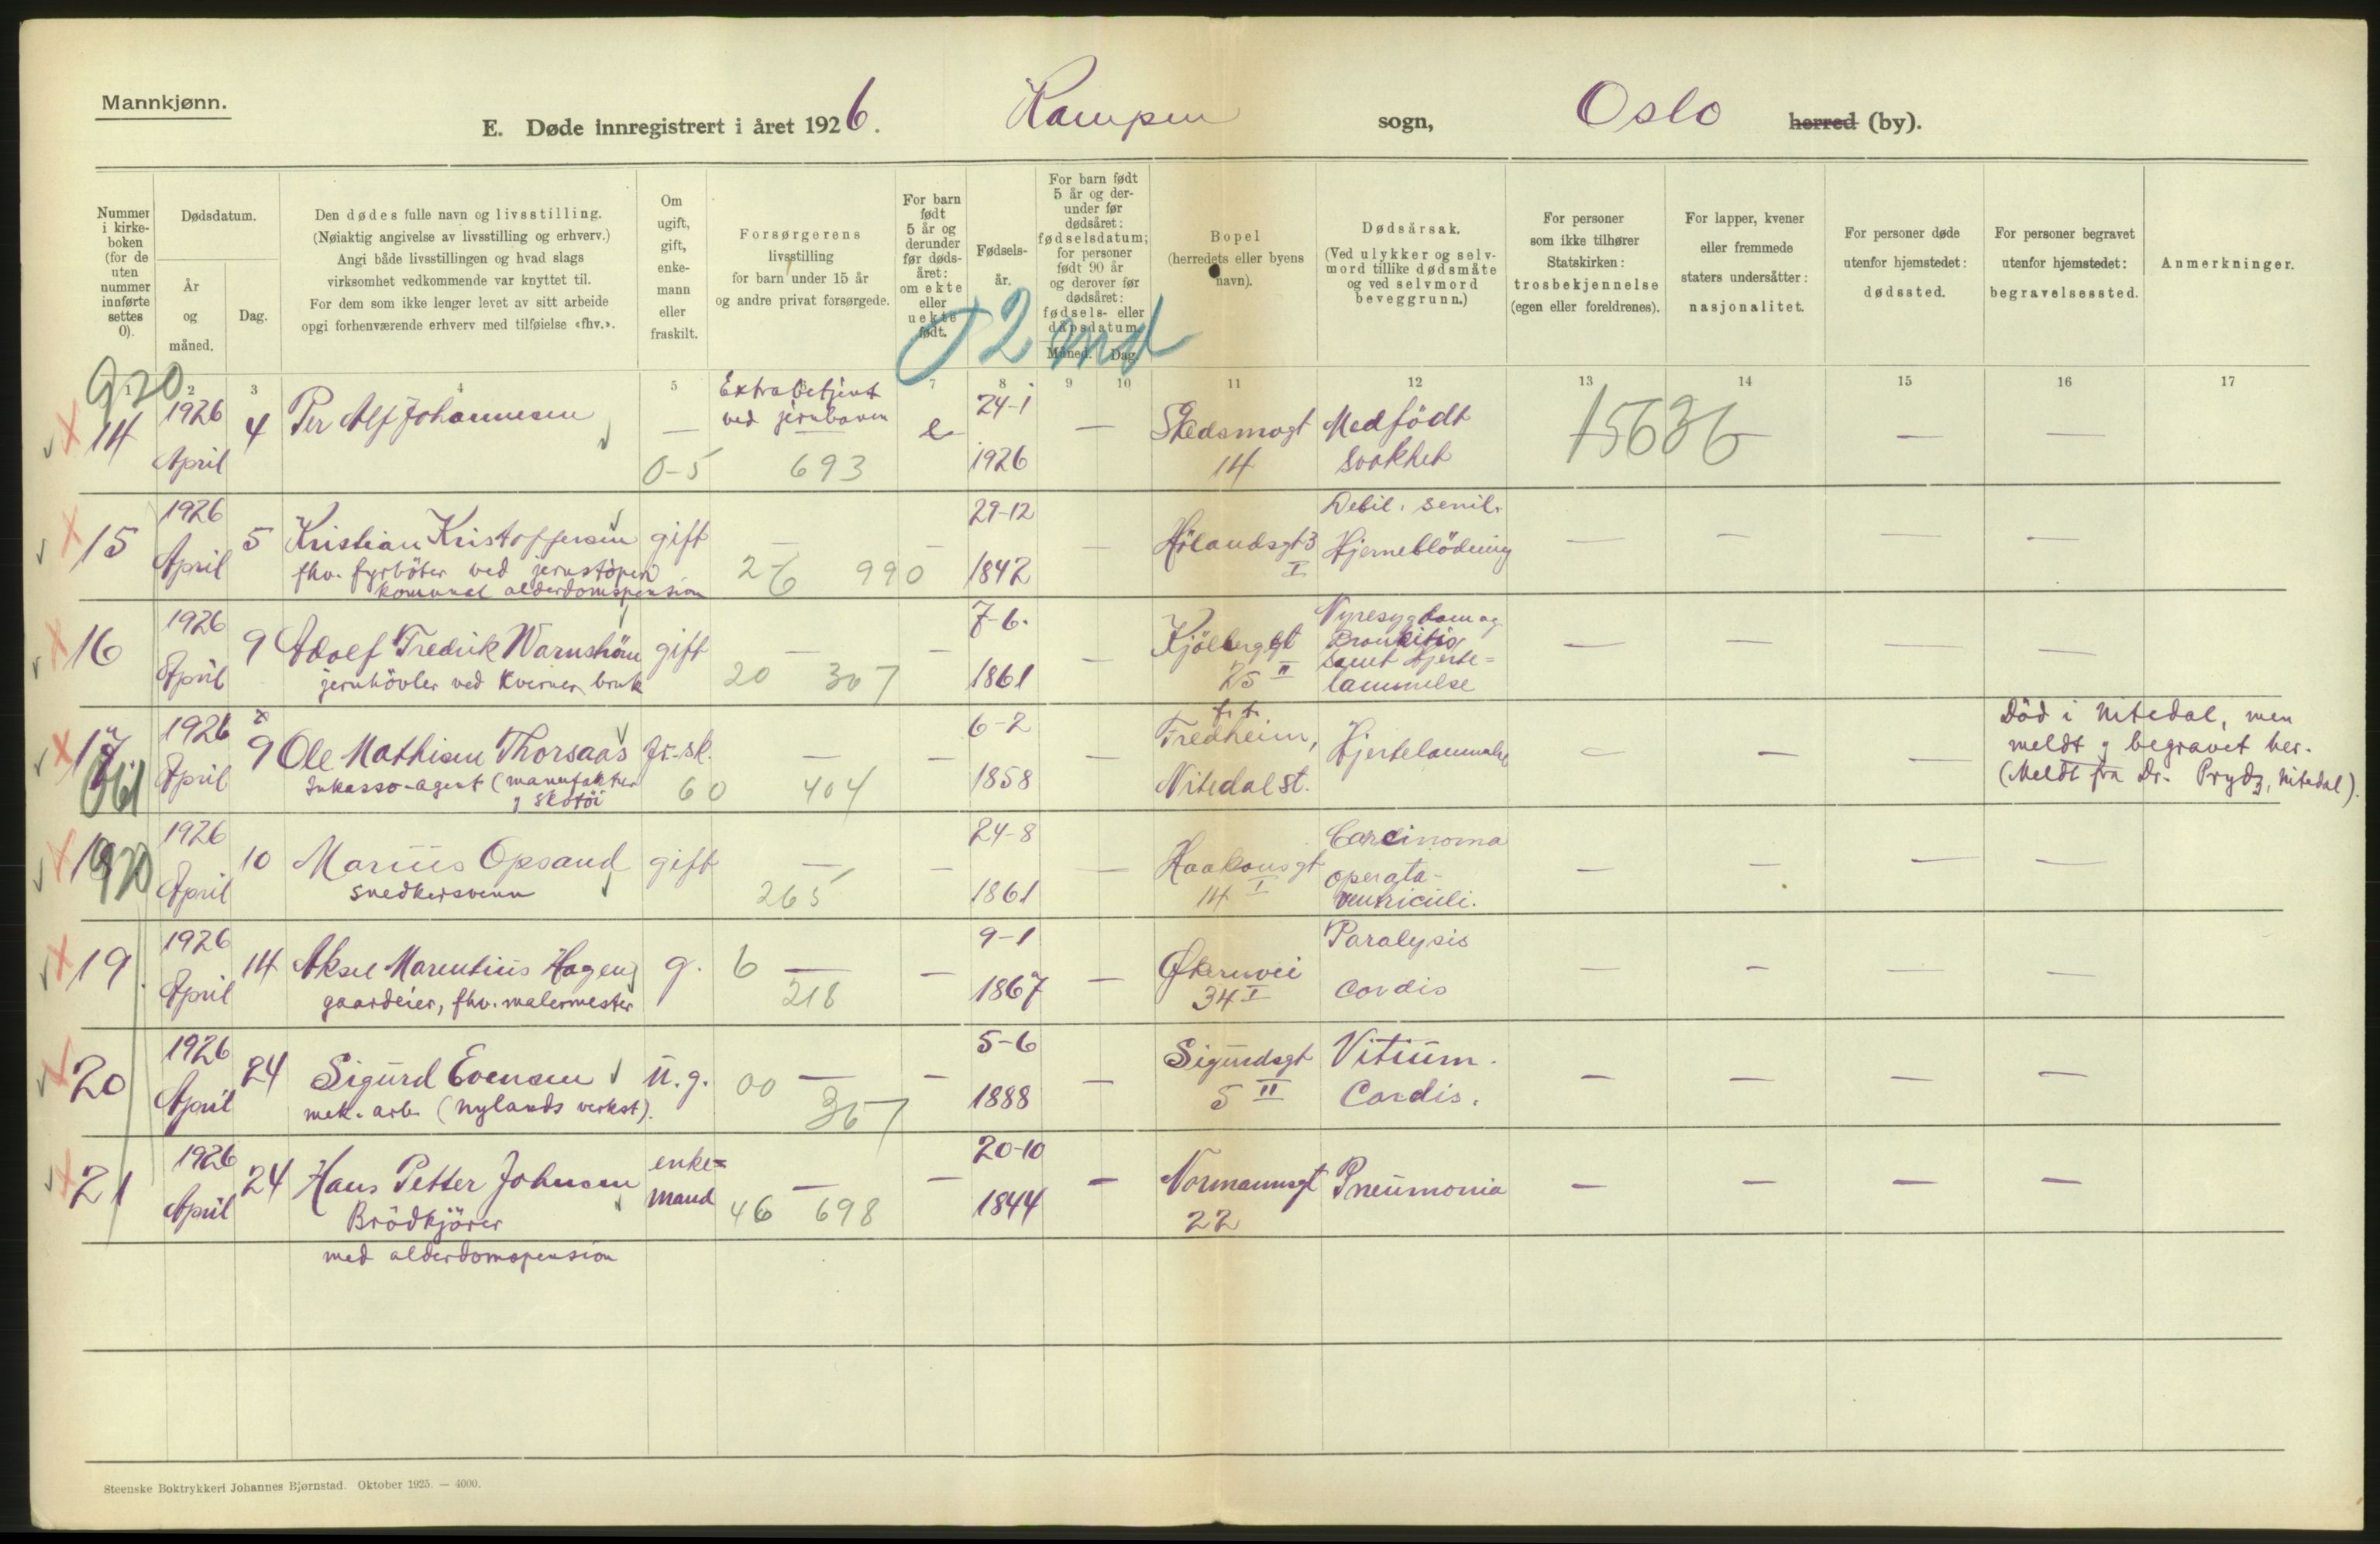 Mannkjønn.
E. Døde innregistrert i året 1926. Kampen sogn, Oslo herred (by).
Nummer i kirke-boken (for de uten nummer innførte settes 0).
Dødsdatum.
År og måned.
Dag.
Den dødes fulle navn og livsstilling.
(Nøiaktig angivelse av livsstilling og erhverv.)
Angi både livsstillingen og hvad slags
virksomhet vedkommende var knyttet til.
For dem som ikke lenger levet av sitt arbeide
opgi forhenværende erhverv med tilføielse «fhv.».
Om ugift, gift, enke-mann eller fraskilt.
Forsørgerens
livsstilling
for barn under 15 år
og andre privat forsørgede.
For barn født 5 år og derunder før døds-året: om ekte eller uekte født.
Fødsels-år.
For barn født 5 år og der-under før dødsåret: fødselsdatum; for personer født 90 år og derover før dødsåret: fødsels- eller dåpsdatum.
Måned. Dag.
Bopel
(herredets eller byens navn).
Dødsårsak.
(Ved ulykker og selv-mord tillike dødsmåte og ved selvmord beveggrunn.)
For personer som ikke tilhører Statskirken: trosbekjennelse (egen eller foreldrenes).
For lapper, kvener eller fremmede staters undersåtter: nasjonalitet.
For personer døde utenfor hjemstedet: dødssted.
For personer begravet utenfor hjemstedet: begravelsessted.
Anmerkninger.
2 md
1 2 3 4 5 7 8 9 10 11 12 13 14 15 16 17
920
14 1926 April 4 Per Alf Johannesen — Extrabetjent ved jernbanen e 24-1 1926 — Skedsmogt 14 Medfödt svakhet — — —
0-5 693 15636
15 1926 April 5 Kristian Kristoffersen gift — — 29-12 1842 — Hölandsgt 3 I Debil. senil. Hjerneblödning — — — —
fhv. fyrböter ved jernstöperi
komunal alderdomspension
26 990
16 1926 April 9 Adolf Fredrik Warnshöm gift — — 7-6. 1861 — Kjölberggt 25 II Nyresygdom og Bronkitis samt Hjerte=lammelse — — — —
jernhövler ved Kværner bruk
20 307
17 1926 April 9 Ole Mathisen Thorsaas fr.sk. — — 6-2 1858 — f.t. Fredheim, Nitedal st. Hjertelammelse — — —
Inkasso-agent (manufaktur
og skotöi
60 404
Död i Nitedal, men
meldt og begravet her.
(Meldt fra Dr. Prydz, Nitedal).
061
18 1926 April 10 Marius Opsand gift — — 24-8 1861 — Haakonsgt 14 I Carcinoma operata- ventriculi. — — — —
snedkersvenn
920 265
19. 1926 April 14 Aksel Marentius Hagen g. — — 9-1 1867 — Økernvei 34 I Paralysis cordis — — — —
gaardeier, fhv. malermester
6 218
20 1926 April 24 Sigurd Evensen u.g. — — 5-6 1888 — Sigurdsgt 5 II Vitium. Cordis. — — — —
mek. arb. (Nylands verkst).
00 367
21 1926 April 24 Hans Petter Johnsen enke=mand — — 20-10 1844 — Normannsgt 22 Pneumonia — — — —
Brödkjörer
med alderdomspension
46 698
Steenske Boktrykkeri Johannes Bjørnstad. Oktober 1925. — 4000.